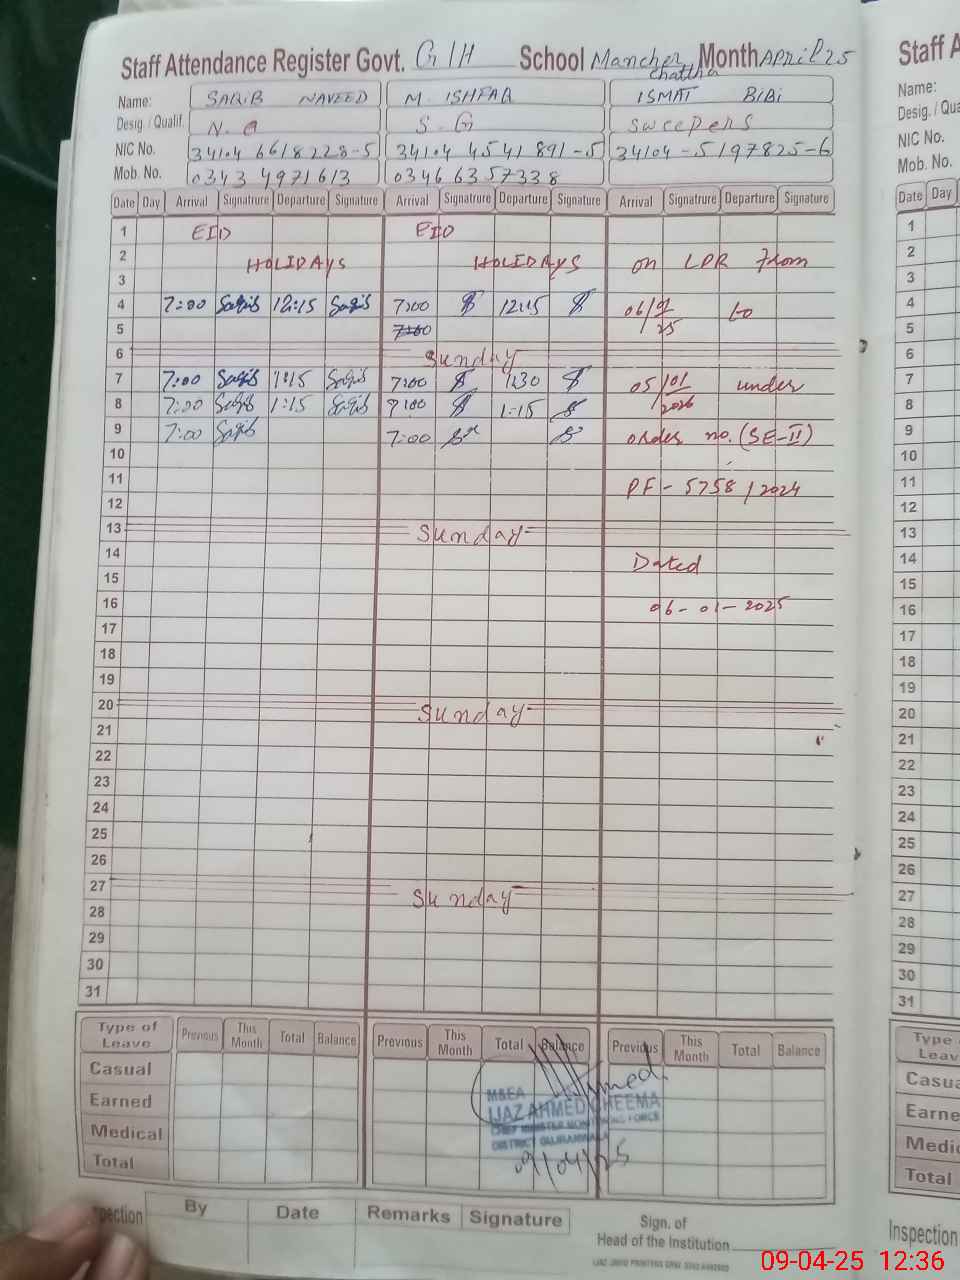 Staff Attendance Register Govt. G/H School Mancher Chattha Month APRIL 25
Name: SAQIB NAVEED M. ISHFAQ ISMAT BIBI
Desig. / Qualif. N.Q S.G Sweepers
NIC No. 34104 6618228-5 34104 4541891-5 34104-5197825-6
Mob. No. 0343 4971613 0346 6357338
Date Day Arrival Signatrure Departure Signature Arrival Signatrure Departure Signature Arrival Signatrure Departure Signature
1 EID EID
2 HOLIDAYS HOLIDAYS on LPR from
3
4 7:00 Saqib 12:15 Saqib 7:00 12:15 06/01/25 to
5 7:00
6 Sunday
7 7:00 Saqib 1:15 Saqib 7:00 1:30 05/01/2026 under
8 7:00 Saqib 1:15 Saqib 7:00 1:15
9 7:00 Saqib 7:00 order no. (SE-II)
10
11 PF-5758/2024
12
13 Sunday
14 Dated
15
16 06-01-2025
17
18
19
20 Sunday
21
22
23
24
25
26
27 Sunday
28
29
30
31
Type of Leave Previous This Month Total Balance Previous This Month Total Balance Previous This Month Total Balance
Casual
Earned
Medical
Total
M&EA
IJAZ AHMED CHEEMA
CHIEF MINISTER MONITORING FORCE
DISTRICT GUJRANWALA
09/04/25
Inspection By Date Remarks Signature
Sign. of
Head of the Institution
Staff A
Name:
Desig. / Qua
NIC No.
Mob. No.
Date Day
1
2
3
4
5
6
7
8
9
10
11
12
13
14
15
16
17
18
19
20
21
22
23
24
25
26
27
28
29
30
31
Type
Leav
Casua
Earne
Medic
Total
Inspection
09-04-25 12:36